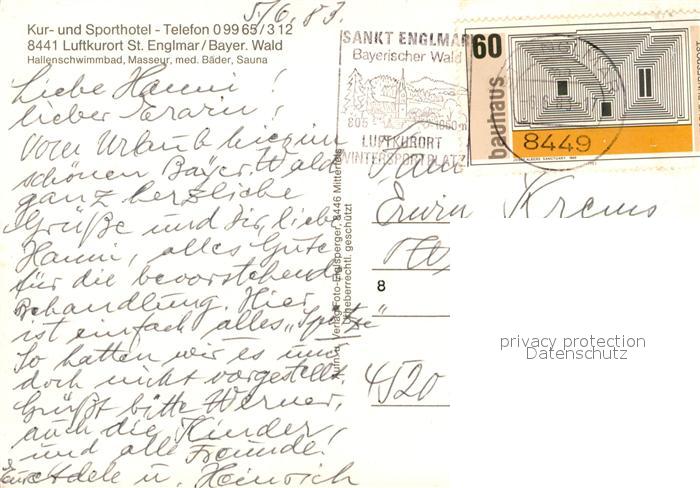 5/6.83.
Kur- und Sporthotel - Telefon 0 99 65 / 3 12
8441 Luftkurort St. Englmar / Bayer. Wald
Hallenschwimmbad, Masseur, med. Bäder, Sauna
Liebe Hanni!
lieber Erwin!
Vom Urlaub hier im
schönen Bayer. Wald
ganz herzliche
Grüße und dir, liebe
Hanni, alles Gute
für die bevorstehende
Behandlung. Hier
ist einfach alles „Spitze"
So hatten wir es uns
doch nicht vorgestellt.
Grüßt bitte Werner,
auch die Kinder
und alle Freunde!
Eure Adele u. Heinrich
SANKT ENGLMAR
Bayerischer Wald
805 1000m
LUFTKURORT
WINTERSPORTPLATZ
60
bauhaus
8449
Verlag Foto-Englsperger, 8446 Mitterfels
Urheberrechtl. geschützt
Fam
Erwin Krems
8
4520
privacy protection
Datenschutz